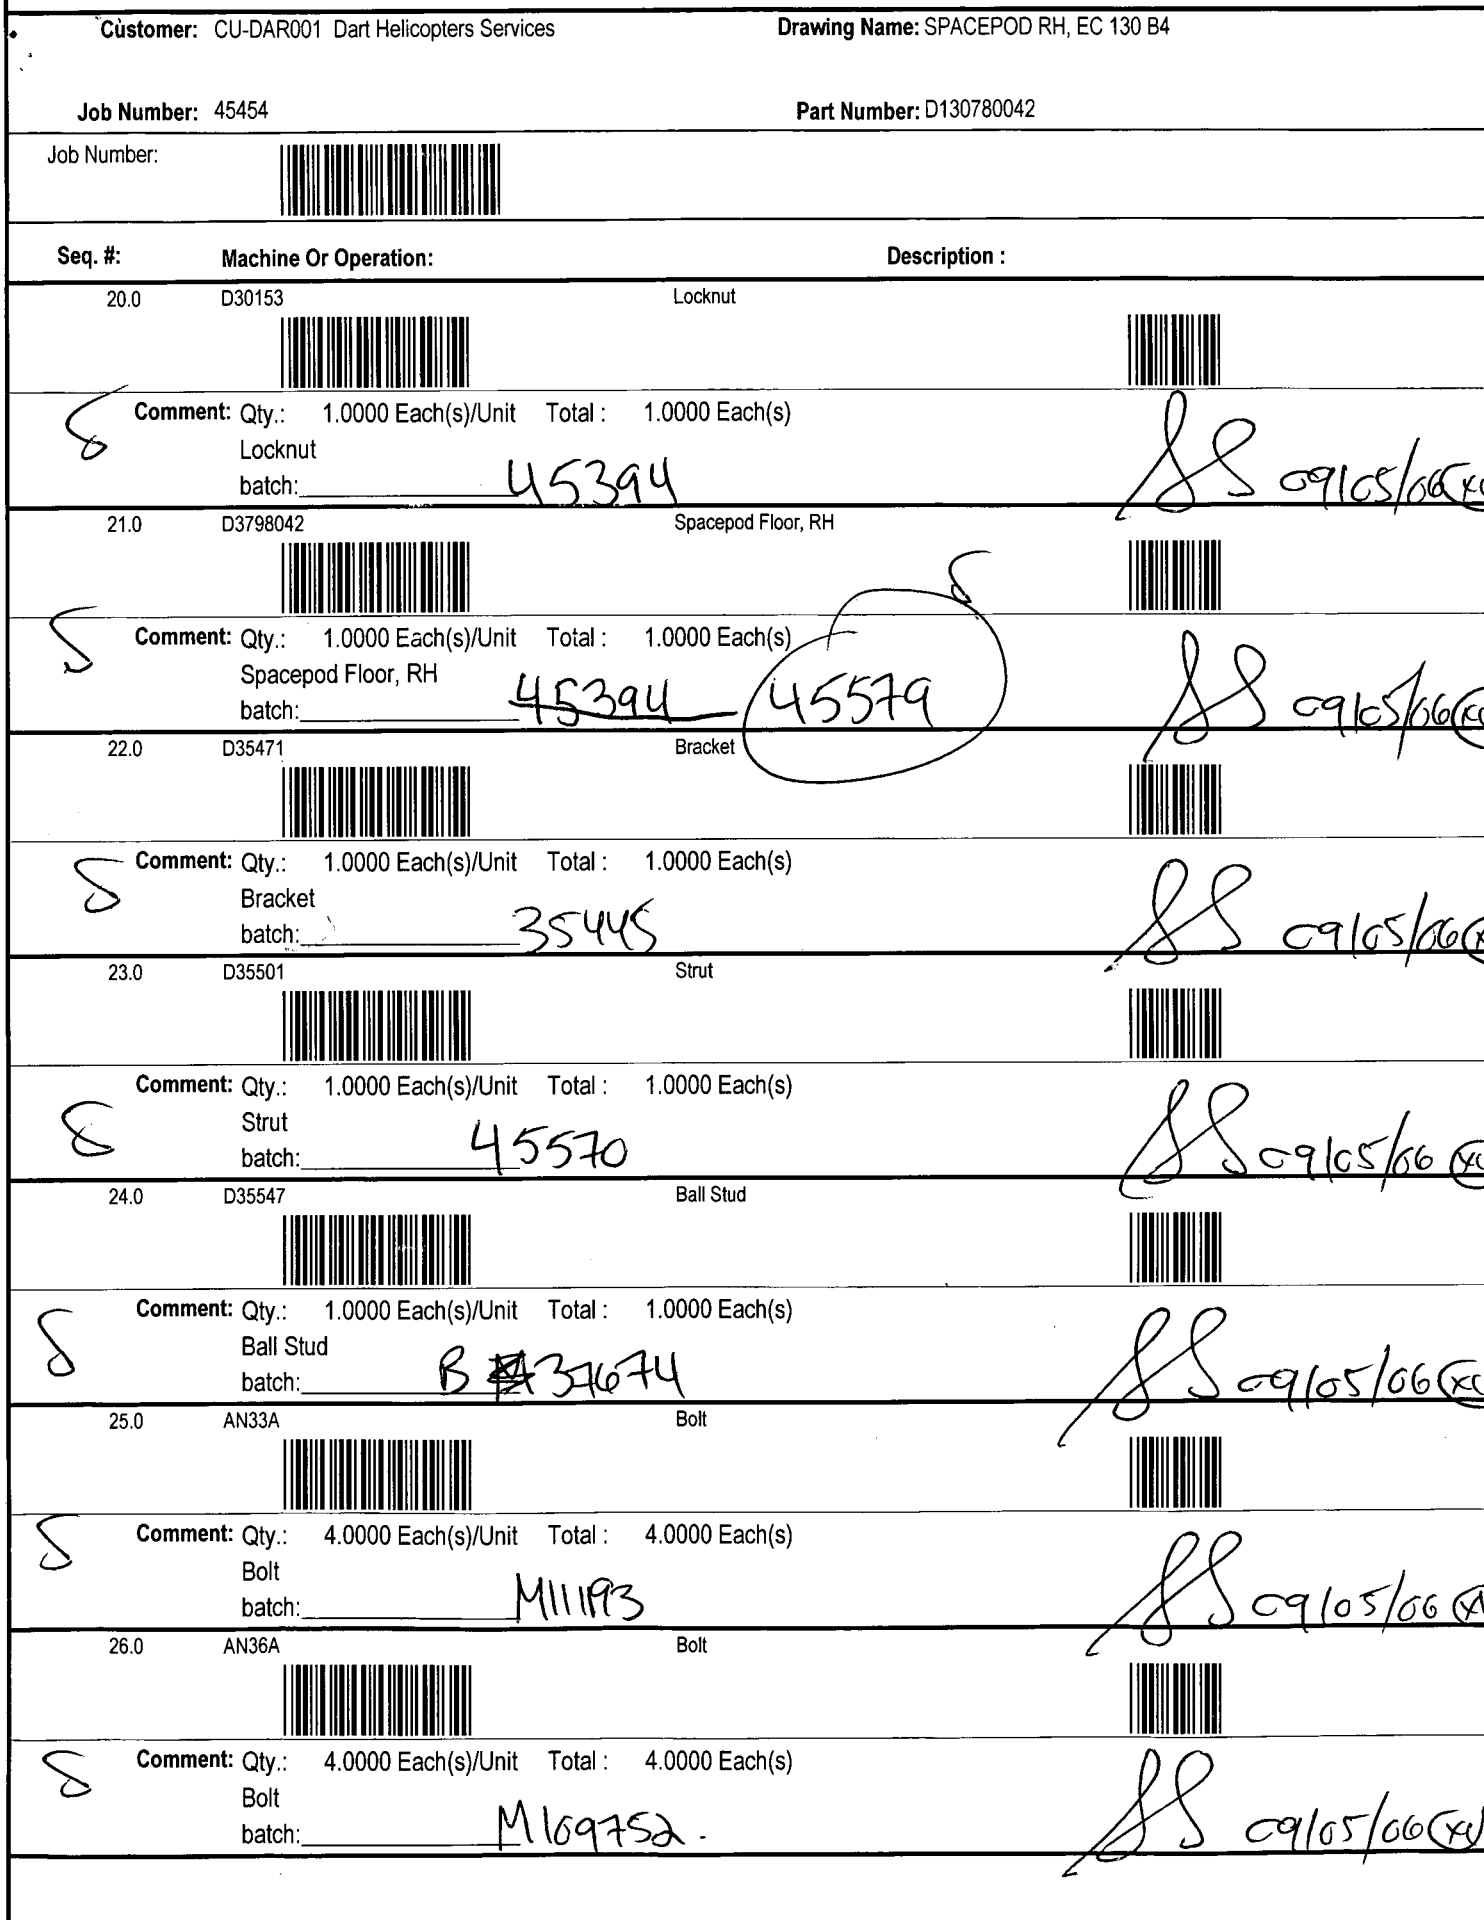 Customer: CU-DAR001 Dart Helicopters Services Drawing Name: SPACEPOD RH, EC 130 B4
Job Number: 45454 Part Number: D130780042
Job Number:
Seq. #: Machine Or Operation: Description :
20.0 D30153 Locknut
Comment: Qty.: 1.0000 Each(s)/Unit Total : 1.0000 Each(s)
Locknut
batch: 45394 09/05/06
21.0 D3798042 Spacepod Floor, RH
Comment: Qty.: 1.0000 Each(s)/Unit Total : 1.0000 Each(s)
Spacepod Floor, RH
batch: 45394 45579 09/05/06
22.0 D35471 Bracket
Comment: Qty.: 1.0000 Each(s)/Unit Total : 1.0000 Each(s)
Bracket
batch: 35445 09/05/06
23.0 D35501 Strut
Comment: Qty.: 1.0000 Each(s)/Unit Total : 1.0000 Each(s)
Strut
batch: 45570 09/05/06
24.0 D35547 Ball Stud
Comment: Qty.: 1.0000 Each(s)/Unit Total : 1.0000 Each(s)
Ball Stud
batch: B 37674 09/05/06
25.0 AN33A Bolt
Comment: Qty.: 4.0000 Each(s)/Unit Total : 4.0000 Each(s)
Bolt
batch: 09/05/06
26.0 AN36A Bolt
Comment: Qty.: 4.0000 Each(s)/Unit Total : 4.0000 Each(s)
Bolt
batch: M109752. 09/05/06